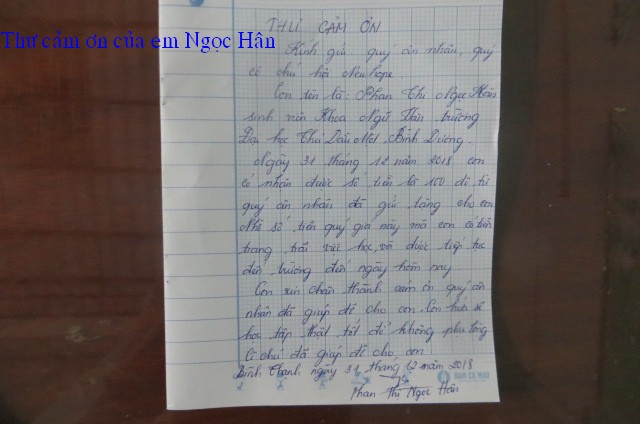 Thư cảm ơn của em Ngọc Hân
THƯ CẢM ƠN
Kính gửi quý ân nhân, quý
cô chú hội Newhope.
Con tên là: Phan Thị Ngọc Hân
sinh viên Khoa Ngữ Văn trường
Đại học Thủ Dầu Một, Bình Dương.
Ngày 31 tháng 12 năm 2018 con
có nhận được số tiền là 100 đô, từ
quý ân nhân đã gửi tặng cho con
nhờ số tiền quý giá này mà con có tiền
trang trải việc học, và được tiếp tục
đến trường đến ngày hôm nay
Con xin chân thành cám ơn quý ân
nhân đã giúp đỡ cho con. Con hứa sẽ
học tập thật tốt để không phụ lòng
cô chú đã giúp đỡ cho con
Bình Thạnh ngày 31 tháng 12 năm 2018
Phan Thị Ngọc Hân